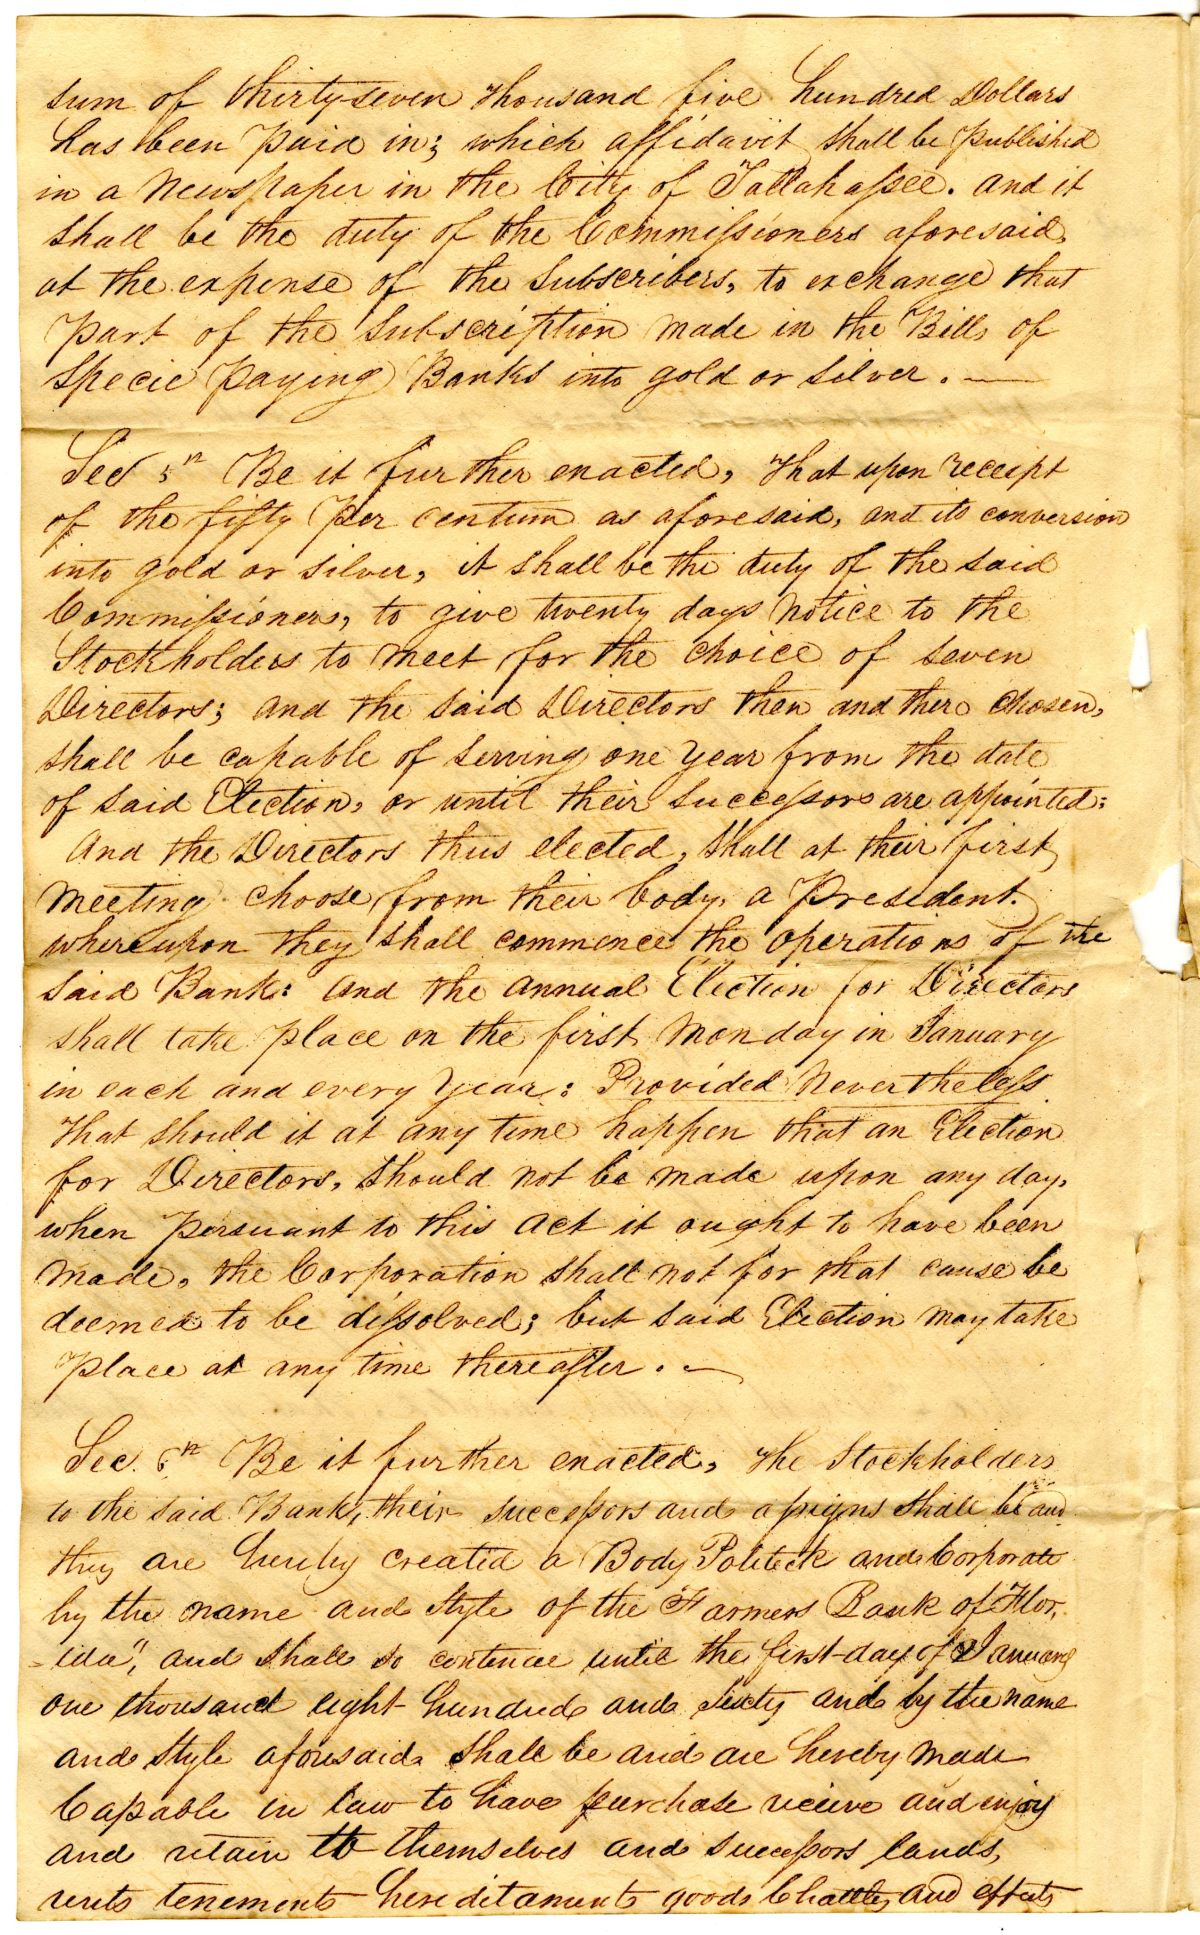 sum of thirty-seven thousand five hundred Dollars
has been paid in; which affidavit shall be published
in a Newspaper in the City of Tallahassee. and it
shall be the duty of the Commissioners aforesaid,
at the expense of the Subscribers, to exchange that
part of the Subscription made in the Bills of
Specie paying Banks into gold or silver. —
Sec 5th Be it further enacted, That upon receipt
of the fifty per centum as aforesaid, and its conversion
into gold or silver, it shall be the duty of the said
Commissioners, to give twenty days notice to the
Stockholders to meet for the choice of seven
Directors; and the said Directors then and there chosen,
shall be capable of serving one year from the date
of said Election, or until their successors are appointed:
And the Directors thus elected, shall at their first
meeting choose from their body, a President.
whereupon they shall commence the operations of the
said Bank: and the annual Election for Directors
shall take place on the first Monday in January
in each and every year: Provided Nevertheless
That should it at any time happen that an Election
for Directors, should not be made upon any day,
when persuant to this act it ought to have been
made, the Corporation shall not for that cause be
deemed to be dissolved; but said Election may take
place at any time thereafter. —
Sec. 6th Be it further enacted, The Stockholders
to the said Bank, their successors and assigns shall be and
they are hereby created a Body Politick and Corporate
by the name and style of the "Farmers Bank of Flor,
-ida", and shall so continue until the first day of January
one thousand eight hundred and sixty and by the name
and style aforesaid shall be and are hereby made
Capable in law to have purchase receive and enjoy
and retain to themselves and successors lands,
rents tenements hereditaments goods Chattles and effects